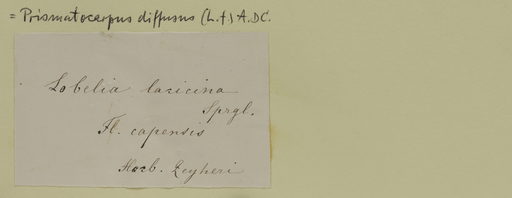 = Prismatocarpus diffusus (L.f.) A.DC.
Lobelia laricina
Sprgl.
Fl. capensis
Herb. Zeyheri